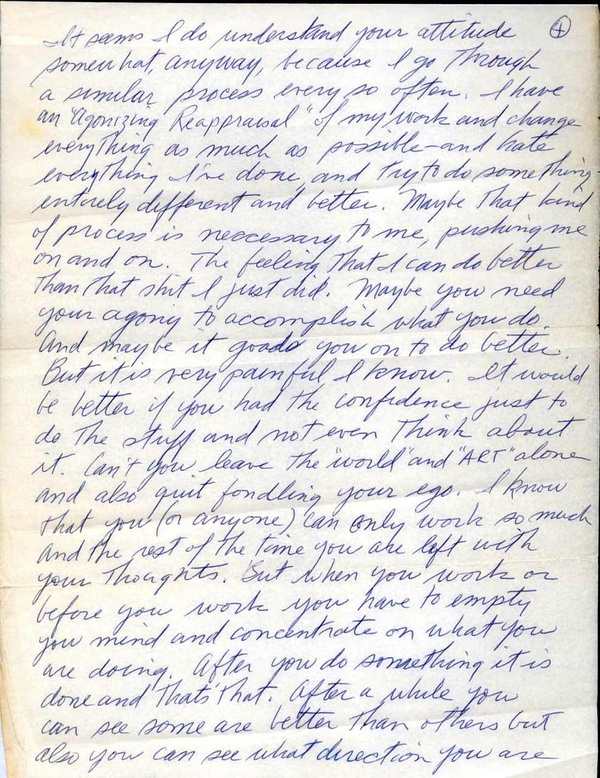 ④
It seems I do understand your attitude
somewhat, anyway, because I go through
a similar process every so often. I have
an "Agonizing Reappraisal" of my work and change
everything as much as possible—and hate
everything I've done, and try to do something
entirely different and better. Maybe that kind
of process is neccessary to me, pushing me
on and on. The feeling that I can do better
than that shit I just did. Maybe you need
your agony to accomplish what you do.
And maybe it goads you on to do better.
But it is very painful I know. It would
be better if you had the confidence just to
do the stuff and not even think about
it. Can't you leave the "world" and "ART" alone
and also quit fondling your ego. I know
that you (or anyone) can only work so much
and the rest of the time you are left with
your thoughts. But when you work or
before you work you have to empty
you mind and concentrate on what you
are doing. After you do something it is
done and that's that. After a while you
can see some are better than others but
also you can see what direction you are